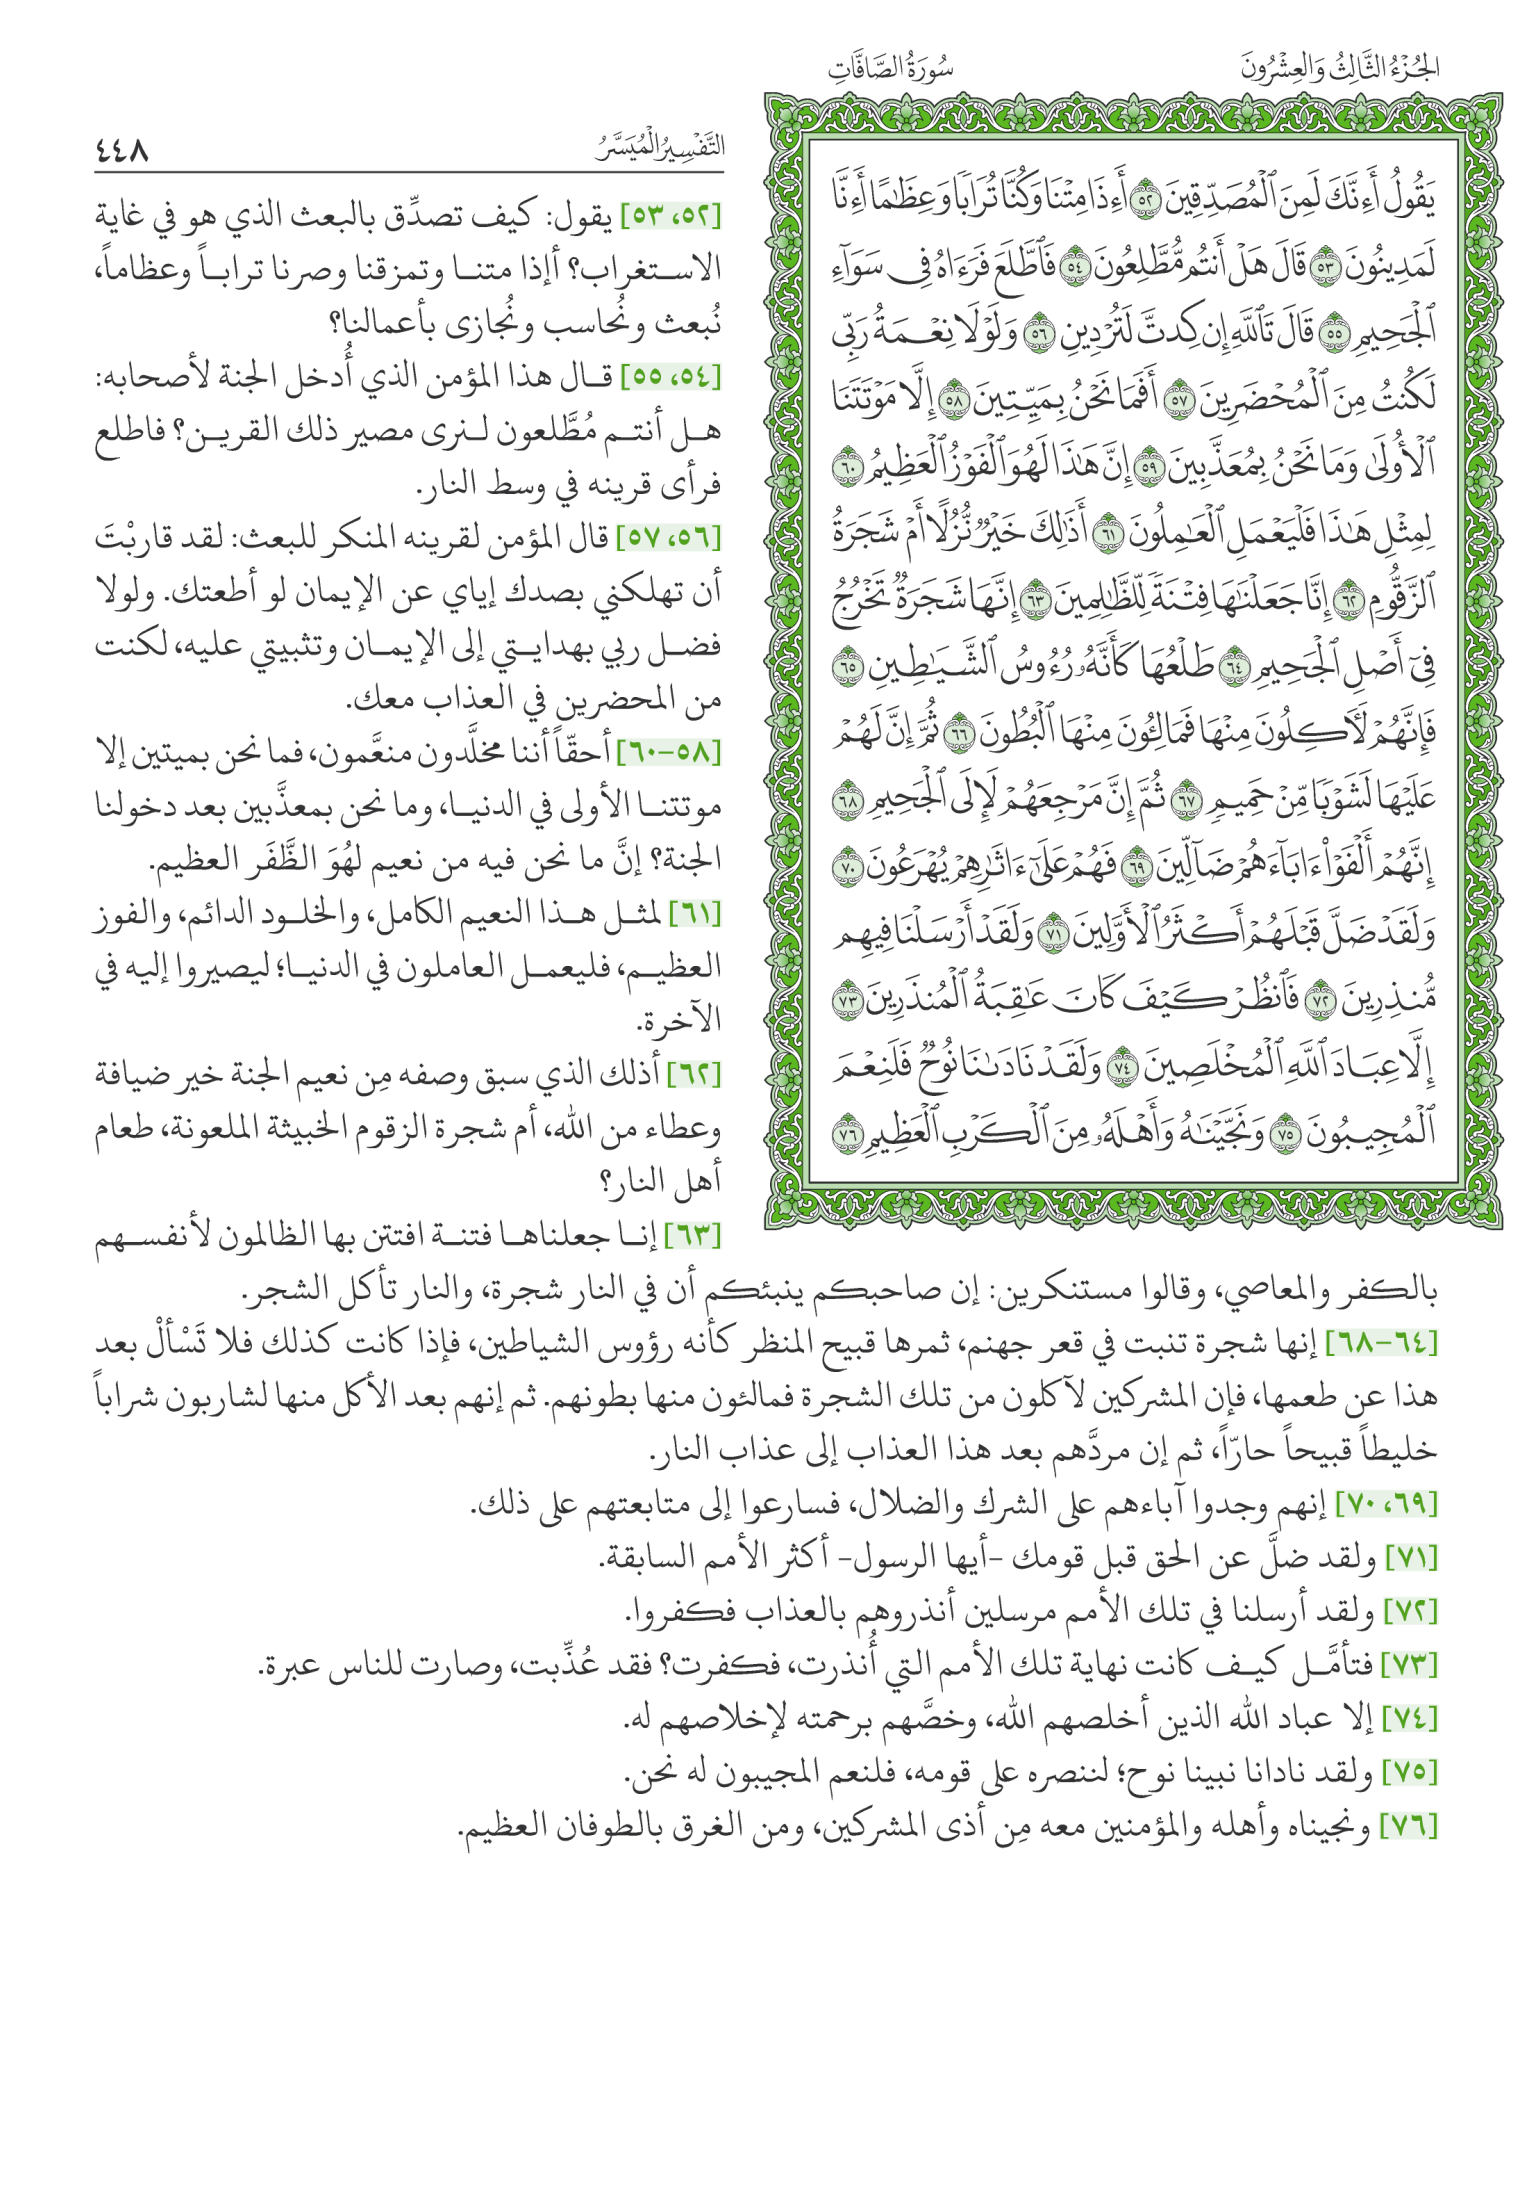 الجُزْءُ الثَّالِثُ وَالعِشْرُونَ
سُورَةُ الصَّافَّاتِ
يَقُولُ أَءِنَّكَ لَمِنَ ٱلْمُصَدِّقِينَ ٥٢ أَءِذَا مِتْنَا وَكُنَّا تُرَابًا وَعِظَٰمًا أَءِنَّا
لَمَدِينُونَ ٥٣ قَالَ هَلْ أَنتُم مُّطَّلِعُونَ ٥٤ فَٱطَّلَعَ فَرَءَاهُ فِى سَوَآءِ
ٱلْجَحِيمِ ٥٥ قَالَ تَٱللَّهِ إِن كِدتَّ لَتُرْدِينِ ٥٦ وَلَوْلَا نِعْمَةُ رَبِّى
لَكُنتُ مِنَ ٱلْمُحْضَرِينَ ٥٧ أَفَمَا نَحْنُ بِمَيِّتِينَ ٥٨ إِلَّا مَوْتَتَنَا
ٱلْأُولَىٰ وَمَا نَحْنُ بِمُعَذَّبِينَ ٥٩ إِنَّ هَٰذَا لَهُوَ ٱلْفَوْزُ ٱلْعَظِيمُ ٦٠
لِمِثْلِ هَٰذَا فَلْيَعْمَلِ ٱلْعَٰمِلُونَ ٦١ أَذَٰلِكَ خَيْرٌ نُّزُلًا أَمْ شَجَرَةُ
ٱلزَّقُّومِ ٦٢ إِنَّا جَعَلْنَٰهَا فِتْنَةً لِّلظَّٰلِمِينَ ٦٣ إِنَّهَا شَجَرَةٌ تَخْرُجُ
فِىٓ أَصْلِ ٱلْجَحِيمِ ٦٤ طَلْعُهَا كَأَنَّهُۥ رُءُوسُ ٱلشَّيَٰطِينِ ٦٥
فَإِنَّهُمْ لَءَاكِلُونَ مِنْهَا فَمَالِـُٔونَ مِنْهَا ٱلْبُطُونَ ٦٦ ثُمَّ إِنَّ لَهُمْ
عَلَيْهَا لَشَوْبًا مِّنْ حَمِيمٍ ٦٧ ثُمَّ إِنَّ مَرْجِعَهُمْ لَإِلَى ٱلْجَحِيمِ ٦٨
إِنَّهُمْ أَلْفَوْا۟ ءَابَآءَهُمْ ضَآلِّينَ ٦٩ فَهُمْ عَلَىٰٓ ءَاثَٰرِهِمْ يُهْرَعُونَ ٧٠
وَلَقَدْ ضَلَّ قَبْلَهُمْ أَكْثَرُ ٱلْأَوَّلِينَ ٧١ وَلَقَدْ أَرْسَلْنَا فِيهِم
مُّنذِرِينَ ٧٢ فَٱنظُرْ كَيْفَ كَانَ عَٰقِبَةُ ٱلْمُنذَرِينَ ٧٣
إِلَّا عِبَادَ ٱللَّهِ ٱلْمُخْلَصِينَ ٧٤ وَلَقَدْ نَادَىٰنَا نُوحٌ فَلَنِعْمَ
ٱلْمُجِيبُونَ ٧٥ وَنَجَّيْنَٰهُ وَأَهْلَهُۥ مِنَ ٱلْكَرْبِ ٱلْعَظِيمِ ٧٦
التَّفْسِيرُ الْمُيَسَّرُ
٤٤٨
[٥٢، ٥٣] يقول: كيف تصدِّق بالبعث الذي هو في غاية
الاستغراب؟ أإذا متنا وتمزقنا وصرنا تراباً وعظاماً،
نُبعث ونُحاسب ونُجازى بأعمالنا؟
[٥٤، ٥٥] قال هذا المؤمن الذي أُدخل الجنة لأصحابه:
هل أنتم مُطَّلعون لنرى مصير ذلك القرين؟ فاطلع
فرأى قرينه في وسط النار.
[٥٦، ٥٧] قال المؤمن لقرينه المنكر للبعث: لقد قاربْتَ
أن تهلكني بصدك إياي عن الإيمان لو أطعتك. ولولا
فضل ربي بهدايتي إلى الإيمان وتثبيتي عليه، لكنت
من المحضرين في العذاب معك.
[٥٨-٦٠] أحقّاً أننا مخلَّدون منعَّمون، فما نحن بميتين إلا
موتتنا الأولى في الدنيا، وما نحن بمعذَّبين بعد دخولنا
الجنة؟ إنَّ ما نحن فيه من نعيم لهُوَ الظَّفَر العظيم.
[٦١] لمثل هذا النعيم الكامل، والخلود الدائم، والفوز
العظيم، فليعمل العاملون في الدنيا؛ ليصيروا إليه في
الآخرة.
[٦٢] أذلك الذي سبق وصفه مِن نعيم الجنة خير ضيافة
وعطاء من الله، أم شجرة الزقوم الخبيثة الملعونة، طعام
أهل النار؟
[٦٣] إنا جعلناها فتنة افتتن بها الظالمون لأنفسهم
بالكفر والمعاصي، وقالوا مستنكرين: إن صاحبكم ينبئكم أن في النار شجرة، والنار تأكل الشجر.
[٦٤-٦٨] إنها شجرة تنبت في قعر جهنم، ثمرها قبيح المنظر كأنه رؤوس الشياطين، فإذا كانت كذلك فلا تَسْألْ بعد
هذا عن طعمها، فإن المشركين لآكلون من تلك الشجرة فمالئون منها بطونهم. ثم إنهم بعد الأكل منها لشاربون شراباً
خليطاً قبيحاً حارّاً، ثم إن مردَّهم بعد هذا العذاب إلى عذاب النار.
[٦٩، ٧٠] إنهم وجدوا آباءهم على الشرك والضلال، فسارعوا إلى متابعتهم على ذلك.
[٧١] ولقد ضلَّ عن الحق قبل قومك -أيها الرسول- أكثر الأمم السابقة.
[٧٢] ولقد أرسلنا في تلك الأمم مرسلين أنذروهم بالعذاب فكفروا.
[٧٣] فتأمَّل كيف كانت نهاية تلك الأمم التي أُنذرت، فكفرت؟ فقد عُذِّبت، وصارت للناس عبرة.
[٧٤] إلا عباد الله الذين أخلصهم الله، وخصَّهم برحمته لإخلاصهم له.
[٧٥] ولقد نادانا نبينا نوح؛ لننصره على قومه، فلنعم المجيبون له نحن.
[٧٦] ونجيناه وأهله والمؤمنين معه مِن أذى المشركين، ومن الغرق بالطوفان العظيم.